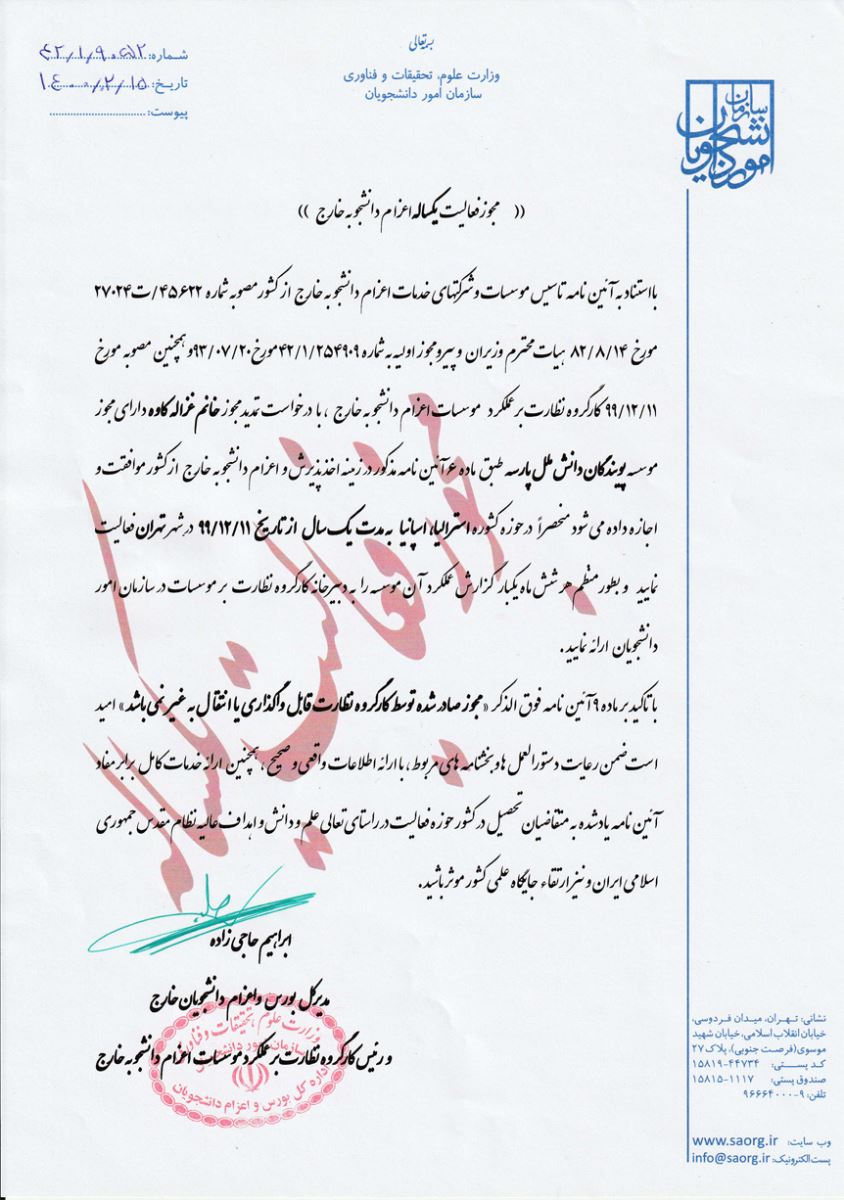 بسمه تعالی
وزارت علوم، تحقیقات و فناوری
سازمان امور دانشجویان
شماره: ۴۲/۱/۹۰۵۱۲
تاریخ: ۱۴۰۰/۲/۱۵
پیوست:
سازمان امور دانشجویان
(( مجوز فعالیت یکساله اعزام دانشجو به خارج ))
با استناد به آئین نامه تاسیس موسسات و شرکتهای خدمات اعزام دانشجو به خارج از کشور مصوبه شماره ۴۵۶۲۲/ت۲۷۰۲۴
مورخ ۸۲/۸/۱۴ هیات محترم وزیران و پیرو مجوز اولیه به شماره ۴۲/۱/۲۵۴۹۰۹ مورخ ۹۳/۰۷/۲۰ و همچنین مصوبه مورخ
۹۹/۱۲/۱۱ کارگروه نظارت بر عملکرد موسسات اعزام دانشجو به خارج ، با درخواست تمدید مجوز خانم غزاله کاوه دارای مجوز
موسسه پویندگان دانش ملل پارسه طبق ماده ۶ آئین نامه مذکور در زمینه اخذ پذیرش و اعزام دانشجو به خارج از کشور موافقت و
اجازه داده می شود منحصراً در حوزه کشوره استرالیا، اسپانیا به مدت یک سال از تاریخ ۹۹/۱۲/۱۱ در شهر تهران فعالیت
نمایید و بطور منظم هر شش ماه یکبار گزارش عملکرد آن موسسه را به دبیرخانه کارگروه نظارت بر موسسات در سازمان امور
دانشجویان ارائه نمایید.
با تاکید بر ماده ۹ آئین نامه فوق الذکر «مجوز صادر شده توسط کارگروه نظارت قابل واگذاری یا انتقال به غیر نمی باشد» امید
است ضمن رعایت دستورالعمل ها و بخشنامه های مربوط ، با ارائه اطلاعات واقعی و صحیح ، همچنین ارائه خدمات کامل برابر مفاد
آئین نامه یاد شده به متقاضیان تحصیل در کشور حوزه فعالیت در راستای تعالی علم و دانش و اهداف عالیه نظام مقدس جمهوری
اسلامی ایران و نیز ارتقاء جایگاه علمی کشور موثر باشید.
مجوز فعالیت یکساله
ابراهیم حاجی زاده
مدیرکل بورس و اعزام دانشجویان خارج
و رئیس کارگروه نظارت بر عملکرد موسسات اعزام دانشجو به خارج
وزارت علوم، تحقیقات و فناوری
سازمان امور دانشجویان
اداره کل بورس و اعزام دانشجویان
نشانی: تهران، میدان فردوسی،
خیابان انقلاب اسلامی، خیابان شهید
موسوی(فرصت جنوبی)، پلاک ۲۷
کد پستی: ۴۴۷۳۴-۱۵۸۱۹
صندوق پستی: ۱۱۱۷-۱۵۸۱۵
تلفن: ۹-۹۶۶۶۴۰۰۰
وب سایت: www.saorg.ir
پست الکترونیک: info@saorg.ir